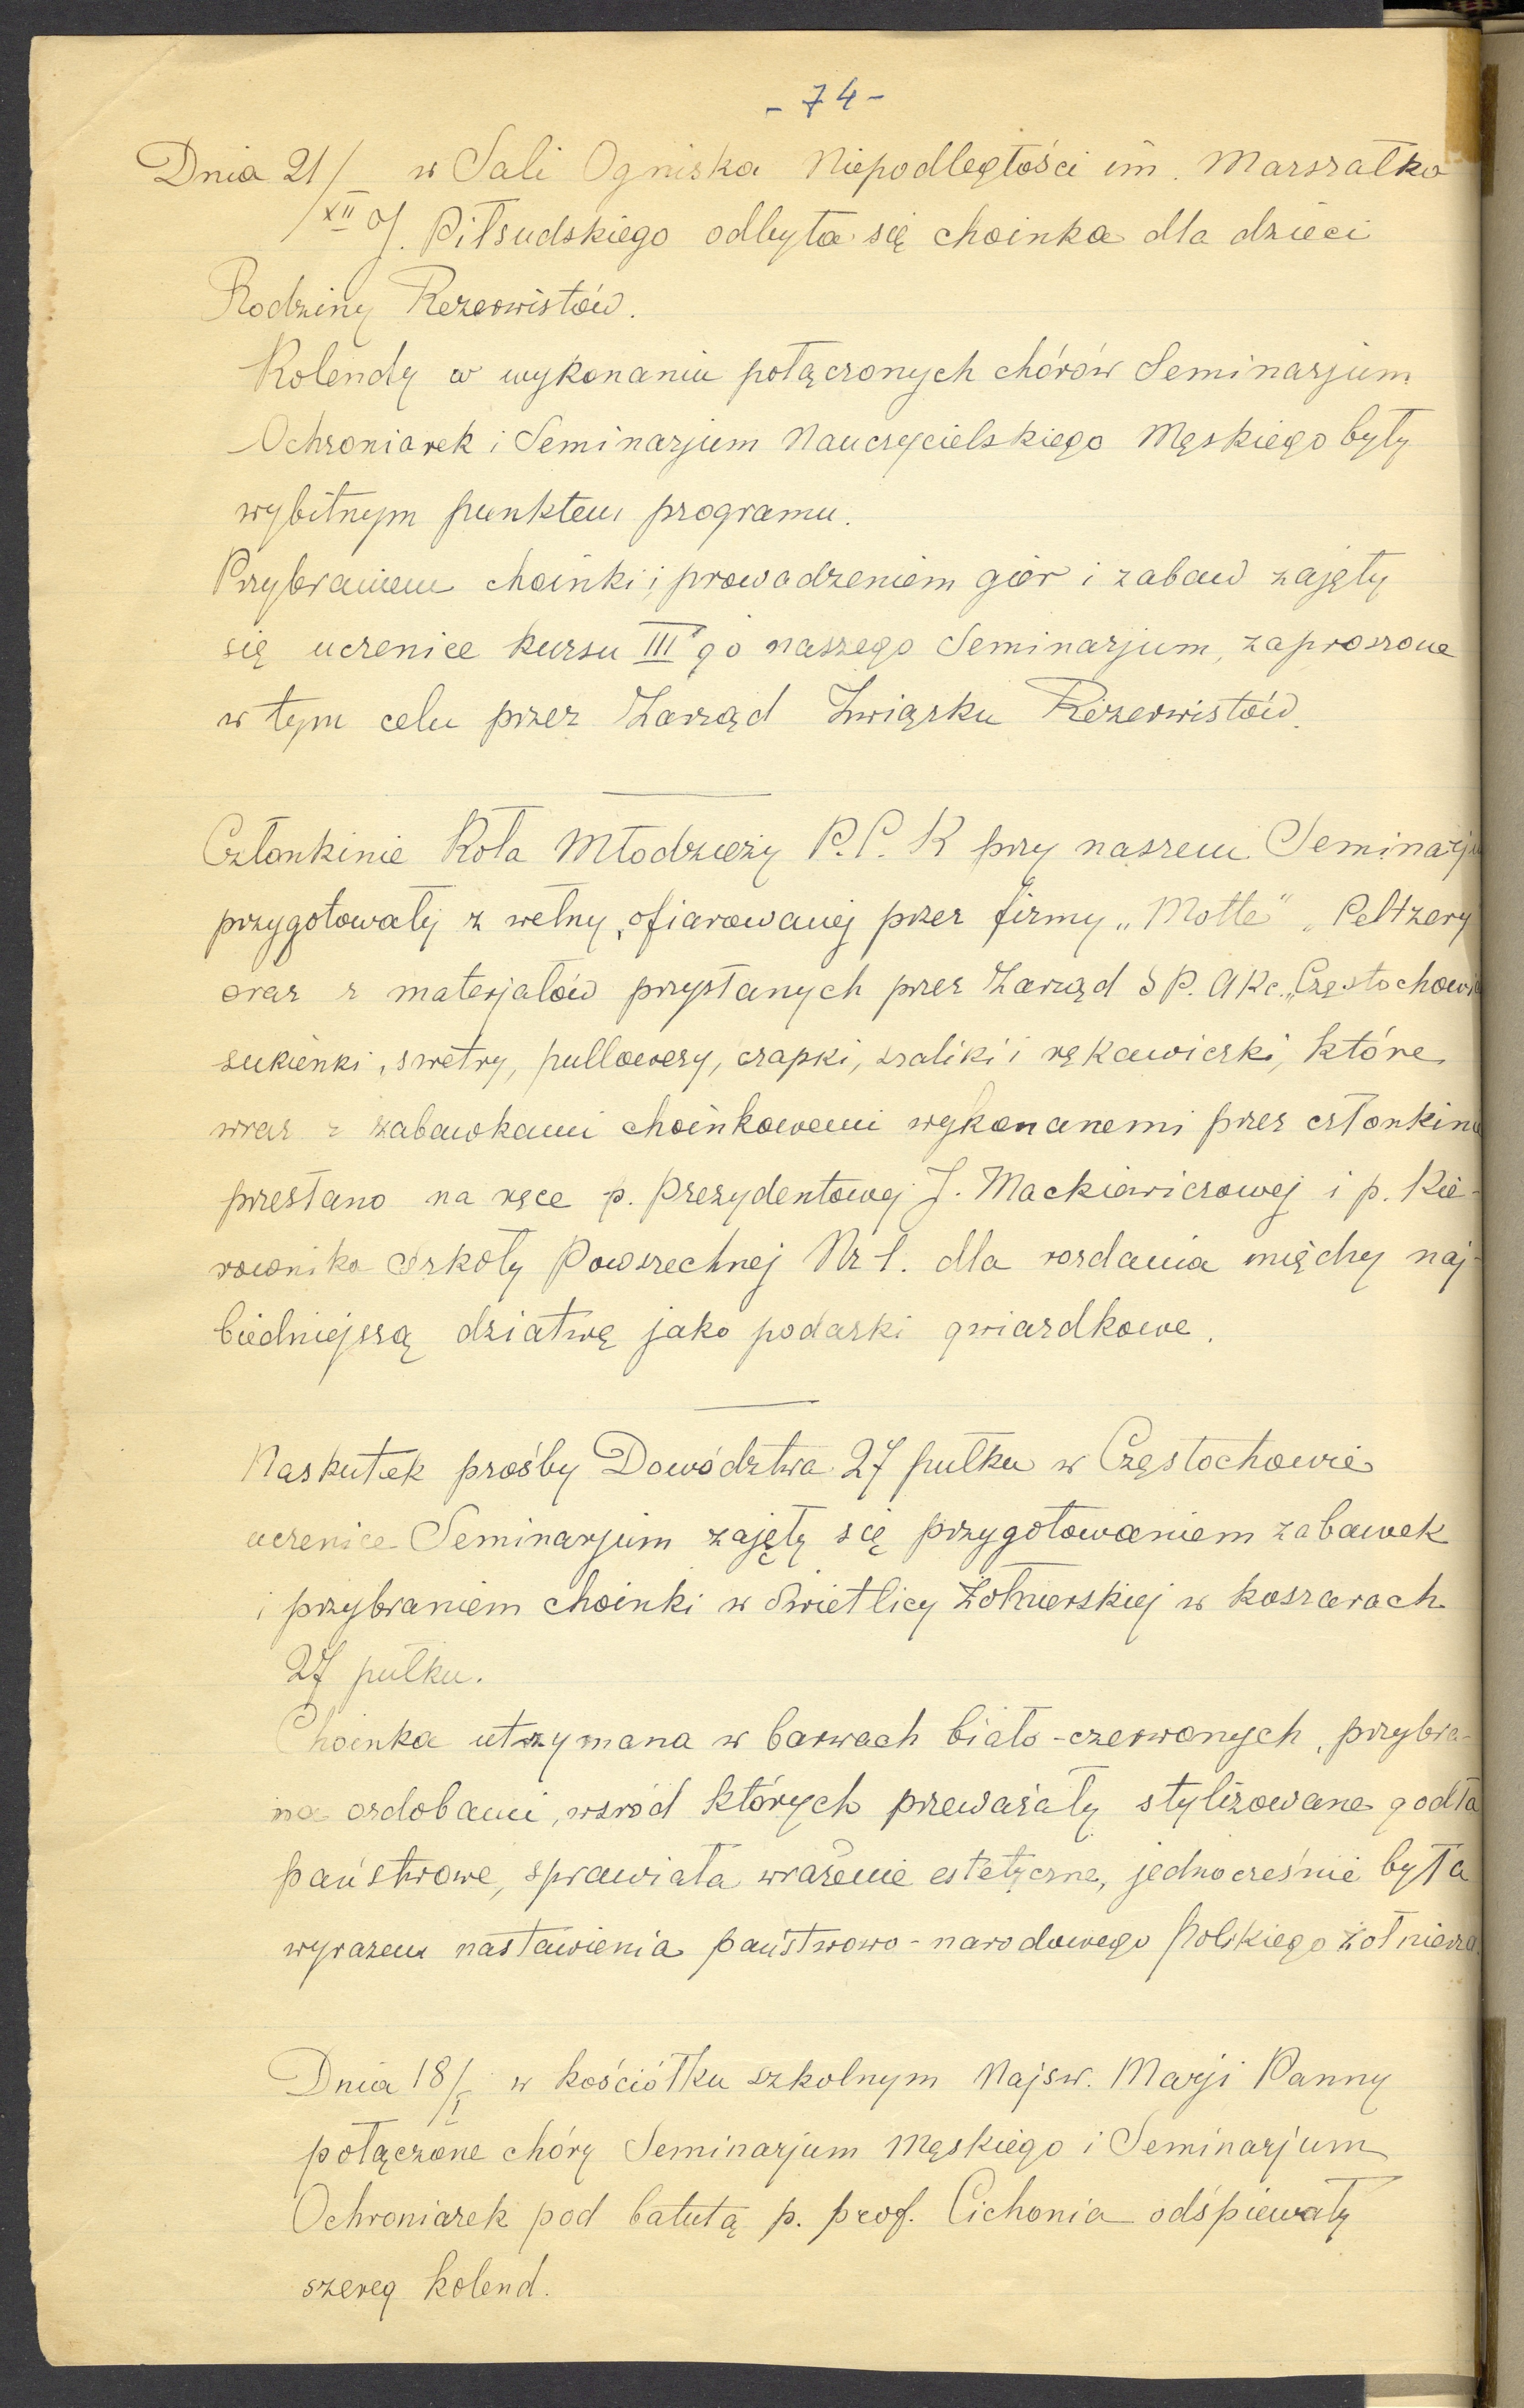 - 74 -
Dnia 21/XII w Sali Ogniska Niepodległości im. Marszałka
J. Piłsudskiego odbyła się choinka dla dzieci
Rodziny Rezerwistów.
Kolendy w wykonaniu połączonych chórów Seminarjum
Ochroniarek i Seminarjum Nauczycielskiego Męskiego były
wybitnym punktem programu.
Przybraniem choinki i prowadzeniem gier i zabaw zajęły
się uczenice kursu III go naszego Seminarjum, zaproszone
w tym celu przez Zarząd Związku Rezerwistów.
Członkinie Koła Młodzieży P.C.K przy naszem Seminarju
przygotowały z wełny, ofiarowanej przez firmy „Motte" „Peltzery
oraz z materjałów przysłanych przez Zarząd SP. Akc. „Częstochowia
sukienki, swetry, pullowery, czapki, szaliki i rękawiczki, które
wraz z zabawkami choinkowemi wykonanemi przez członkinie
przesłano na ręce p. Prezydentowej J. Mackiewiczowej i p. Kie-
rownika Szkoły Powszechnej Nr 1. dla rozdania między naj-
biedniejszą dziatwę jako podarki gwiazdkowe.
Naskutek prośby Dowództwa 27 pułku w Częstochowie
uczenice Seminarjum zajęły się przygotowaniem zabawek
i przybraniem choinki w Świetlicy Żołnierskiej w koszarach
27 pułku.
Choinka utrzymana w barwach biało-czerwonych, przybra-
na ozdobami, wśród których przeważały stylizowane godła
państwowe, sprawiała wrażenie estetyczne, jednocześnie była
wyrazem nastawienia państwowo-narodowego Polskiego żołnierza.
Dnia 18/I w kościółku szkolnym Najsw. Marji Panny
połączone chóry Seminarjum Męskiego i Seminarjum
Ochroniarek pod batutą p. prof. Cichonia odśpiewały
szereg kolend.